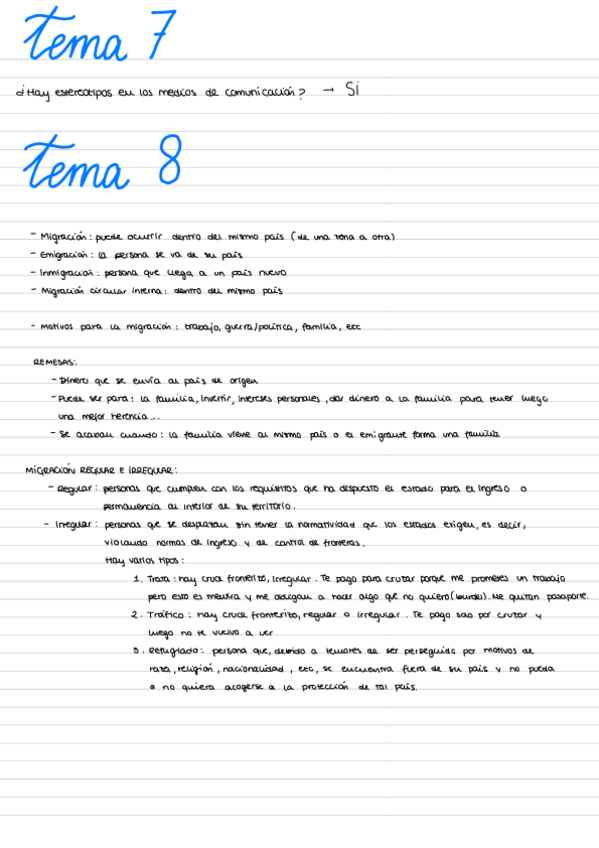 tema 7
¿Hay estereotipos en los medios de comunicación? → Sí
tema 8
- Migración: puede ocurrir dentro del mismo país (de una zona a otra)
- Emigración: la persona se va de su país
- Inmigración: persona que llega a un país nuevo
- Migración circular interna: dentro del mismo país
- Motivos para la migración: trabajo, guerra/política, familia, etc
REMESAS:
- Dinero que se envía al país de origen
- Puede ser para: la familia, invertir, intereses personales, dar dinero a la familia para tener luego
una mejor herencia...
- Se acaban cuando: la familia viene al mismo país o el emigrante forma una familia
MIGRACIÓN REGULAR E IRREGULAR:
- Regular: personas que cumplen con los requisitos que ha dispuesto el estado para el ingreso o
permanencia al interior de su territorio.
- Irregular: personas que se desplazan sin tener la normatividad que los estados exigen, es decir,
violando normas de ingreso y de control de fronteras.
Hay varios tipos:
1. Trata: hay cruce fronterizo, irregular. Te pago para cruzar porque me prometes un trabajo
pero esto es mentira y me obligan a hacer algo que no quiero (burdel). Me quitan pasaporte.
2. Tráfico: hay cruce fronterizo, regular o irregular. Te pago solo por cruzar y
luego no te vuelvo a ver
3. Refugiado: persona que, debido a temores de ser perseguido por motivos de
raza, religión, nacionalidad, etc, se encuentra fuera de su país y no pueda
o no quiera acogerse a la protección de tal país.